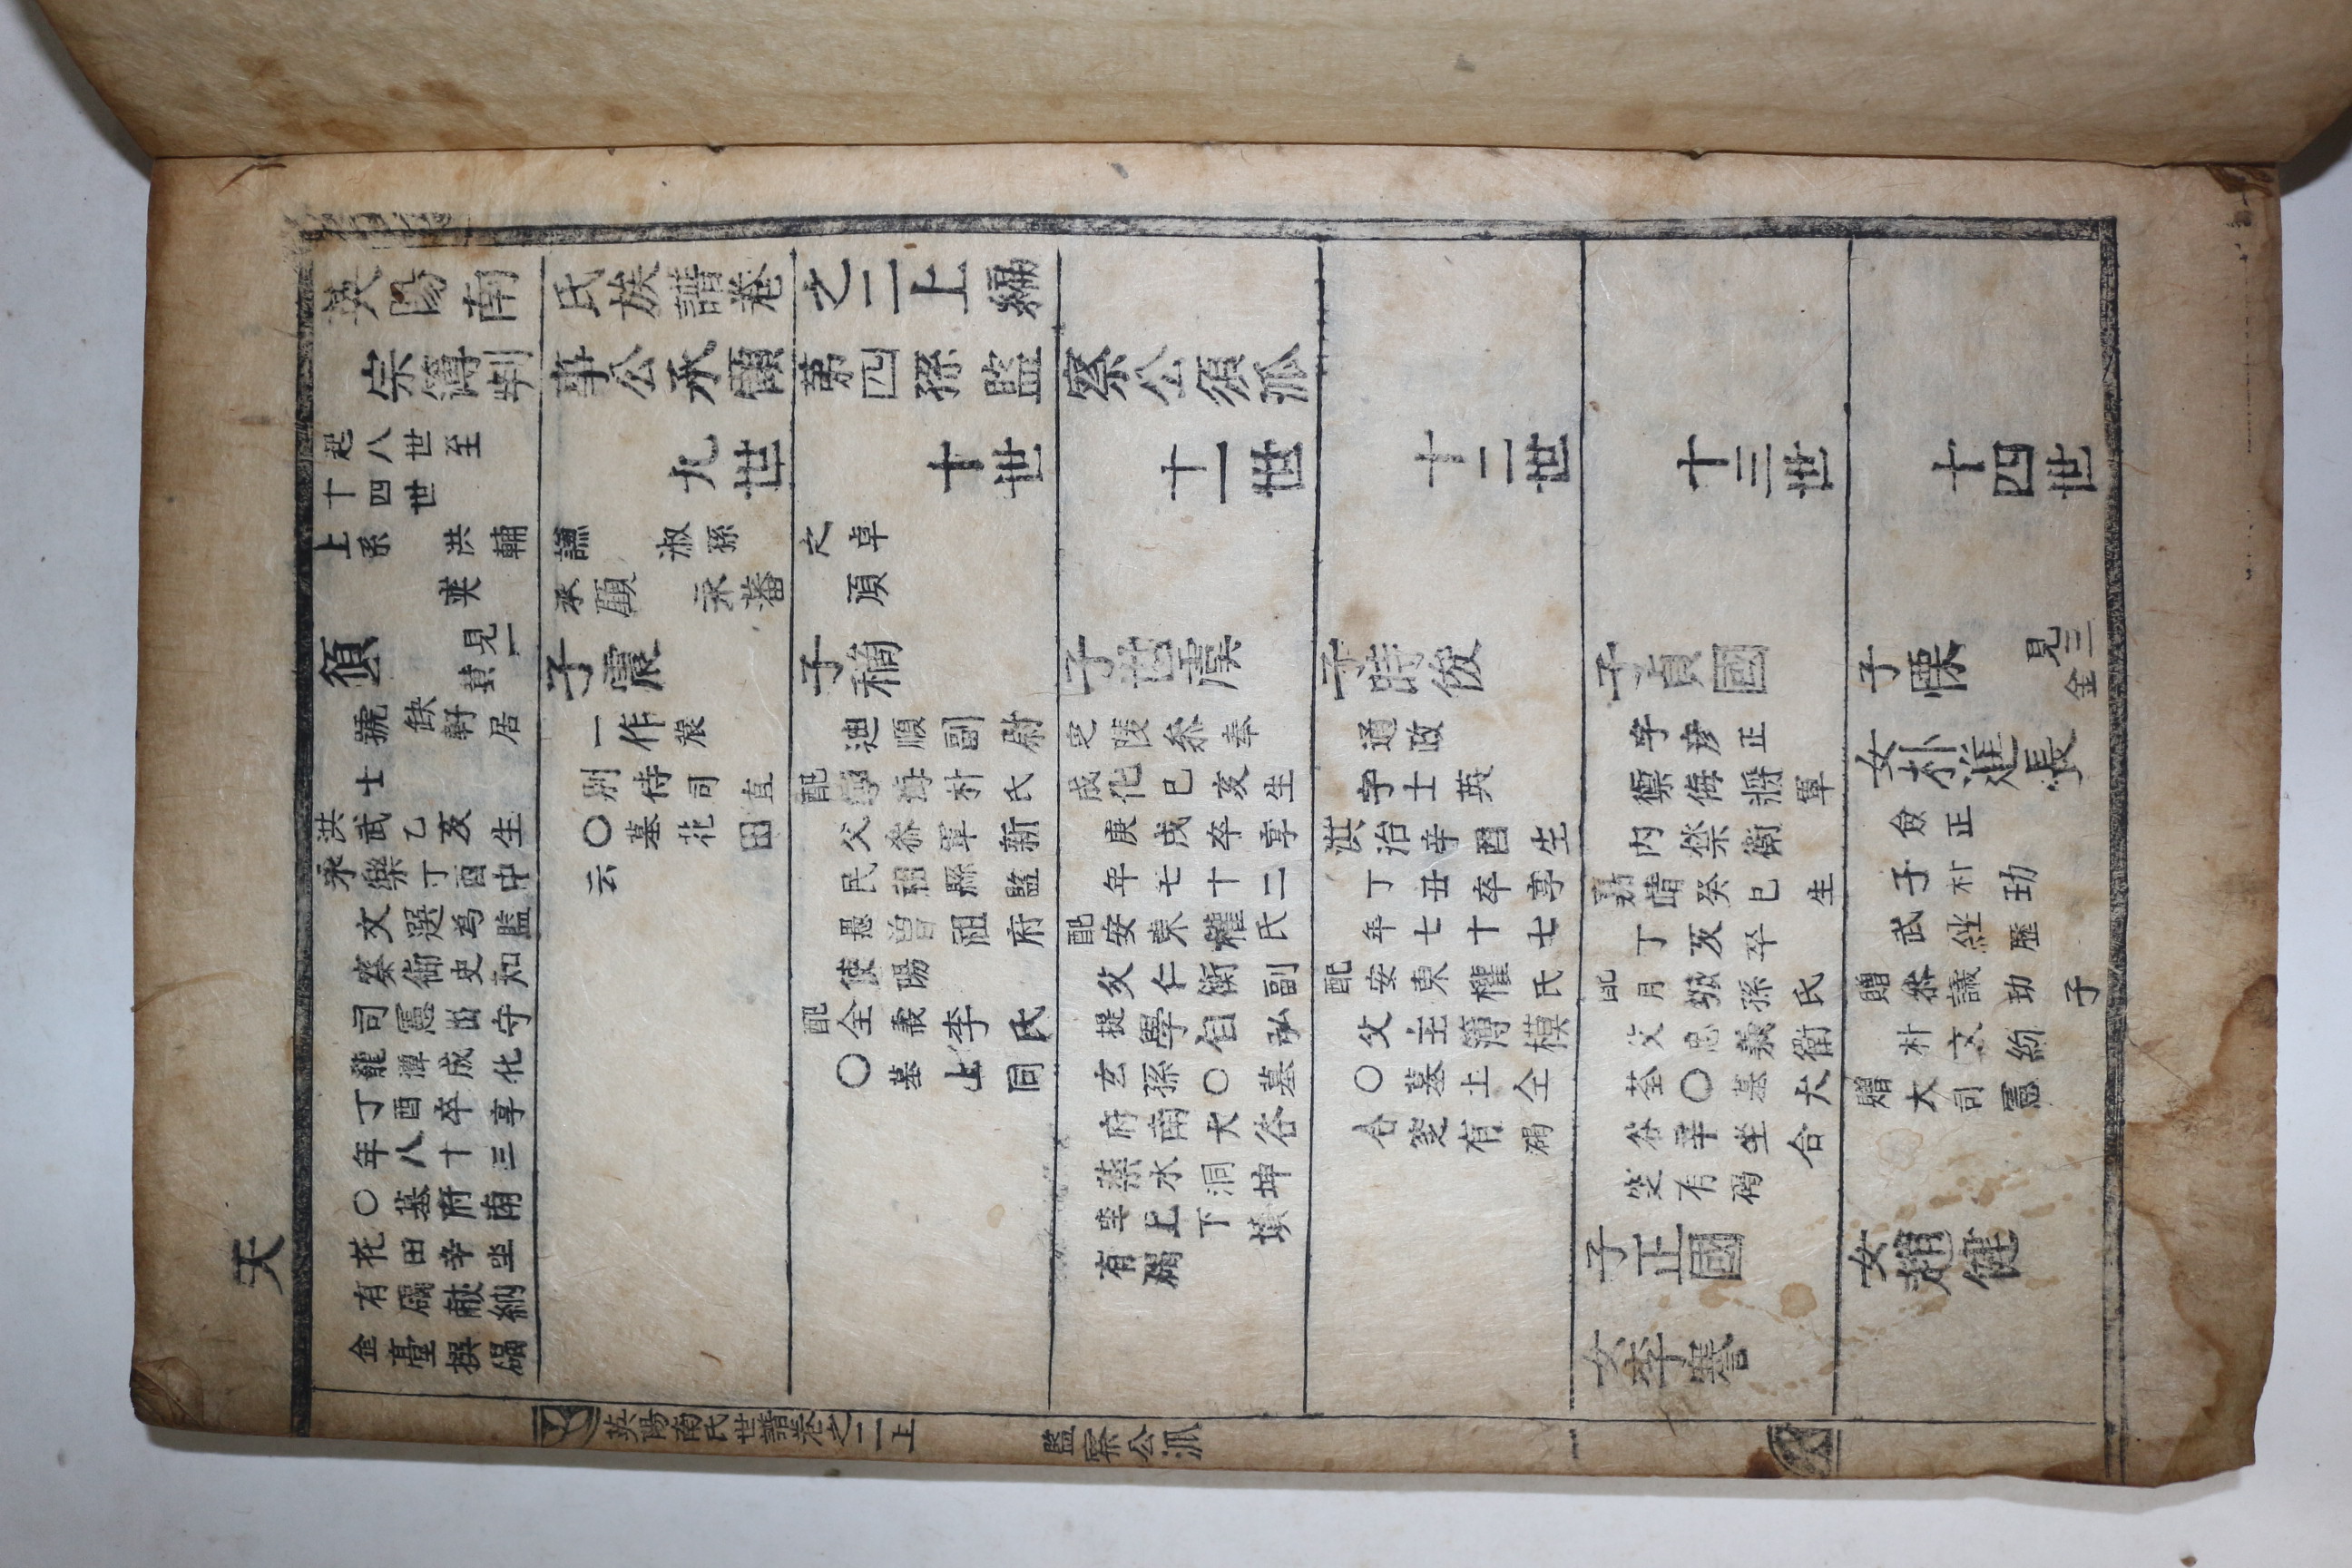 天
英陽南氏族譜卷之二上編
宗簿判事公承顧第四孫監察公須派
起八世至
十四世
九世
十世
十一世
十二世
十三世
十四世
上系 洪輔
奕
謙 淑孫
承顧 永蕃
之卓
湏
須 見一
黃
號缺軒居
士
洪武乙亥生
永樂丁酉中
文選為監
察御史知
司憲出守
龍潭成化
丁酉卒享
年八十三
〇墓府南
花田辛坐
有碣献納
金臺撰碣
子震
一作宸
別侍司直
〇墓花田
云
子稱
迪順副尉
配寧海朴氏
父叅軍新
民祖縣監
愚曾祖府
使陽
配全義李氏
〇墓上同
子世虞
定陵叅奉
成化己亥生
庚戌卒享
年七十二
配安東權氏
父仁衡副
提學自弘
玄孫〇墓
府南大谷
藥水洞坤
坐上下塡
有碣
子時俊
通政
字士英
洪治辛酉生
丁丑卒享
年七十七
配安東權氏
父主簿模
〇墓上仝
合窆有碣
子貞國
字彦正
禦侮將軍
內禁衛
嘉靖癸巳生
丁亥卒
配月城孫氏
父忠義衛
荃〇墓大
谷辛坐合
窆有碣
子正國
女李謇
子慄 見三
金
女朴進長
僉正
子朴玏
武經歷
贈叅議玏子
朴文絢
贈大司憲
女趙健
英陽南氏世譜卷之二上 監察公派 一